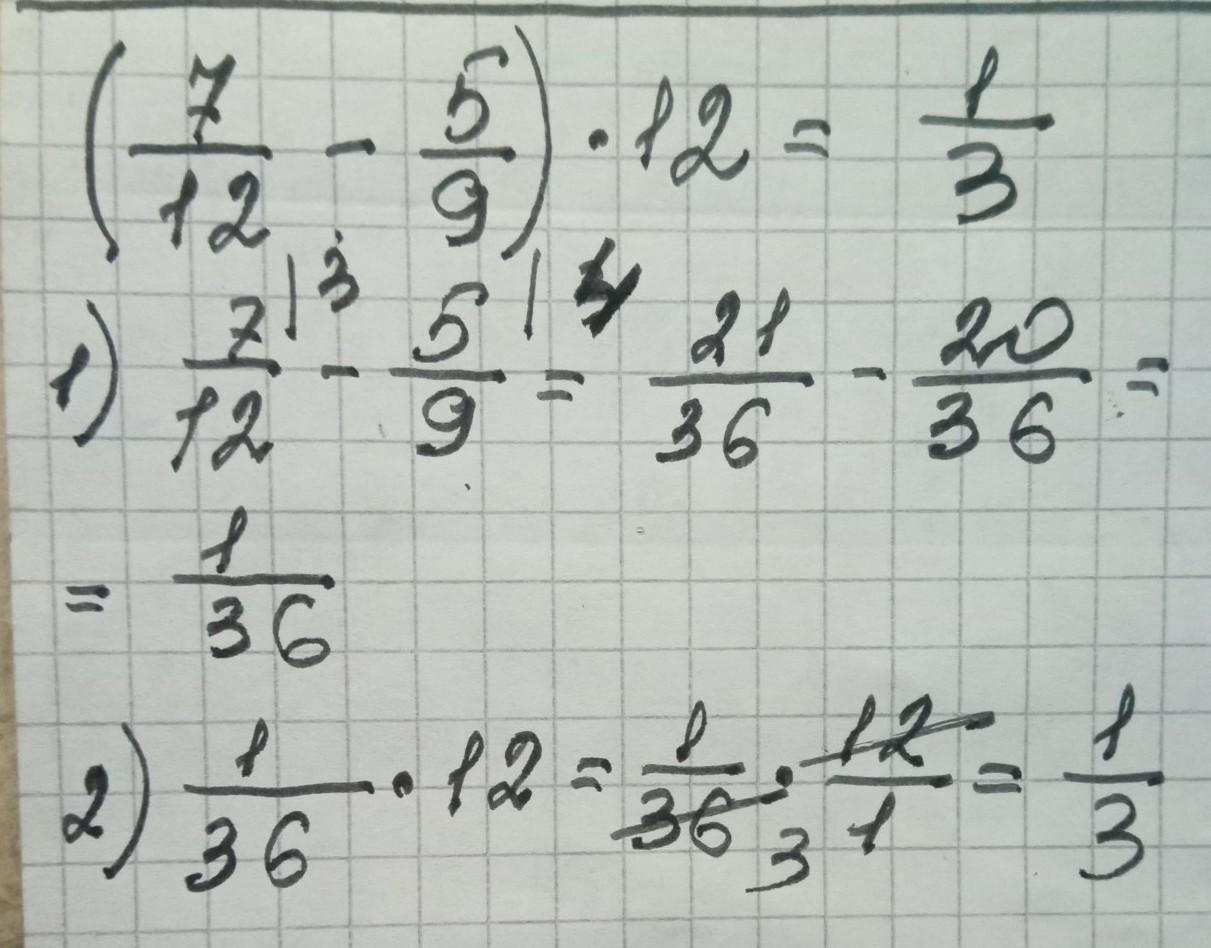 (7/12 - 5/9) · 12 = 1/3
1) 7/12 |3 - 5/9 |4 = 21/36 - 20/36 =
= 1/36
2) 1/36 · 12 = 1/36 3 · 12/1 = 1/3